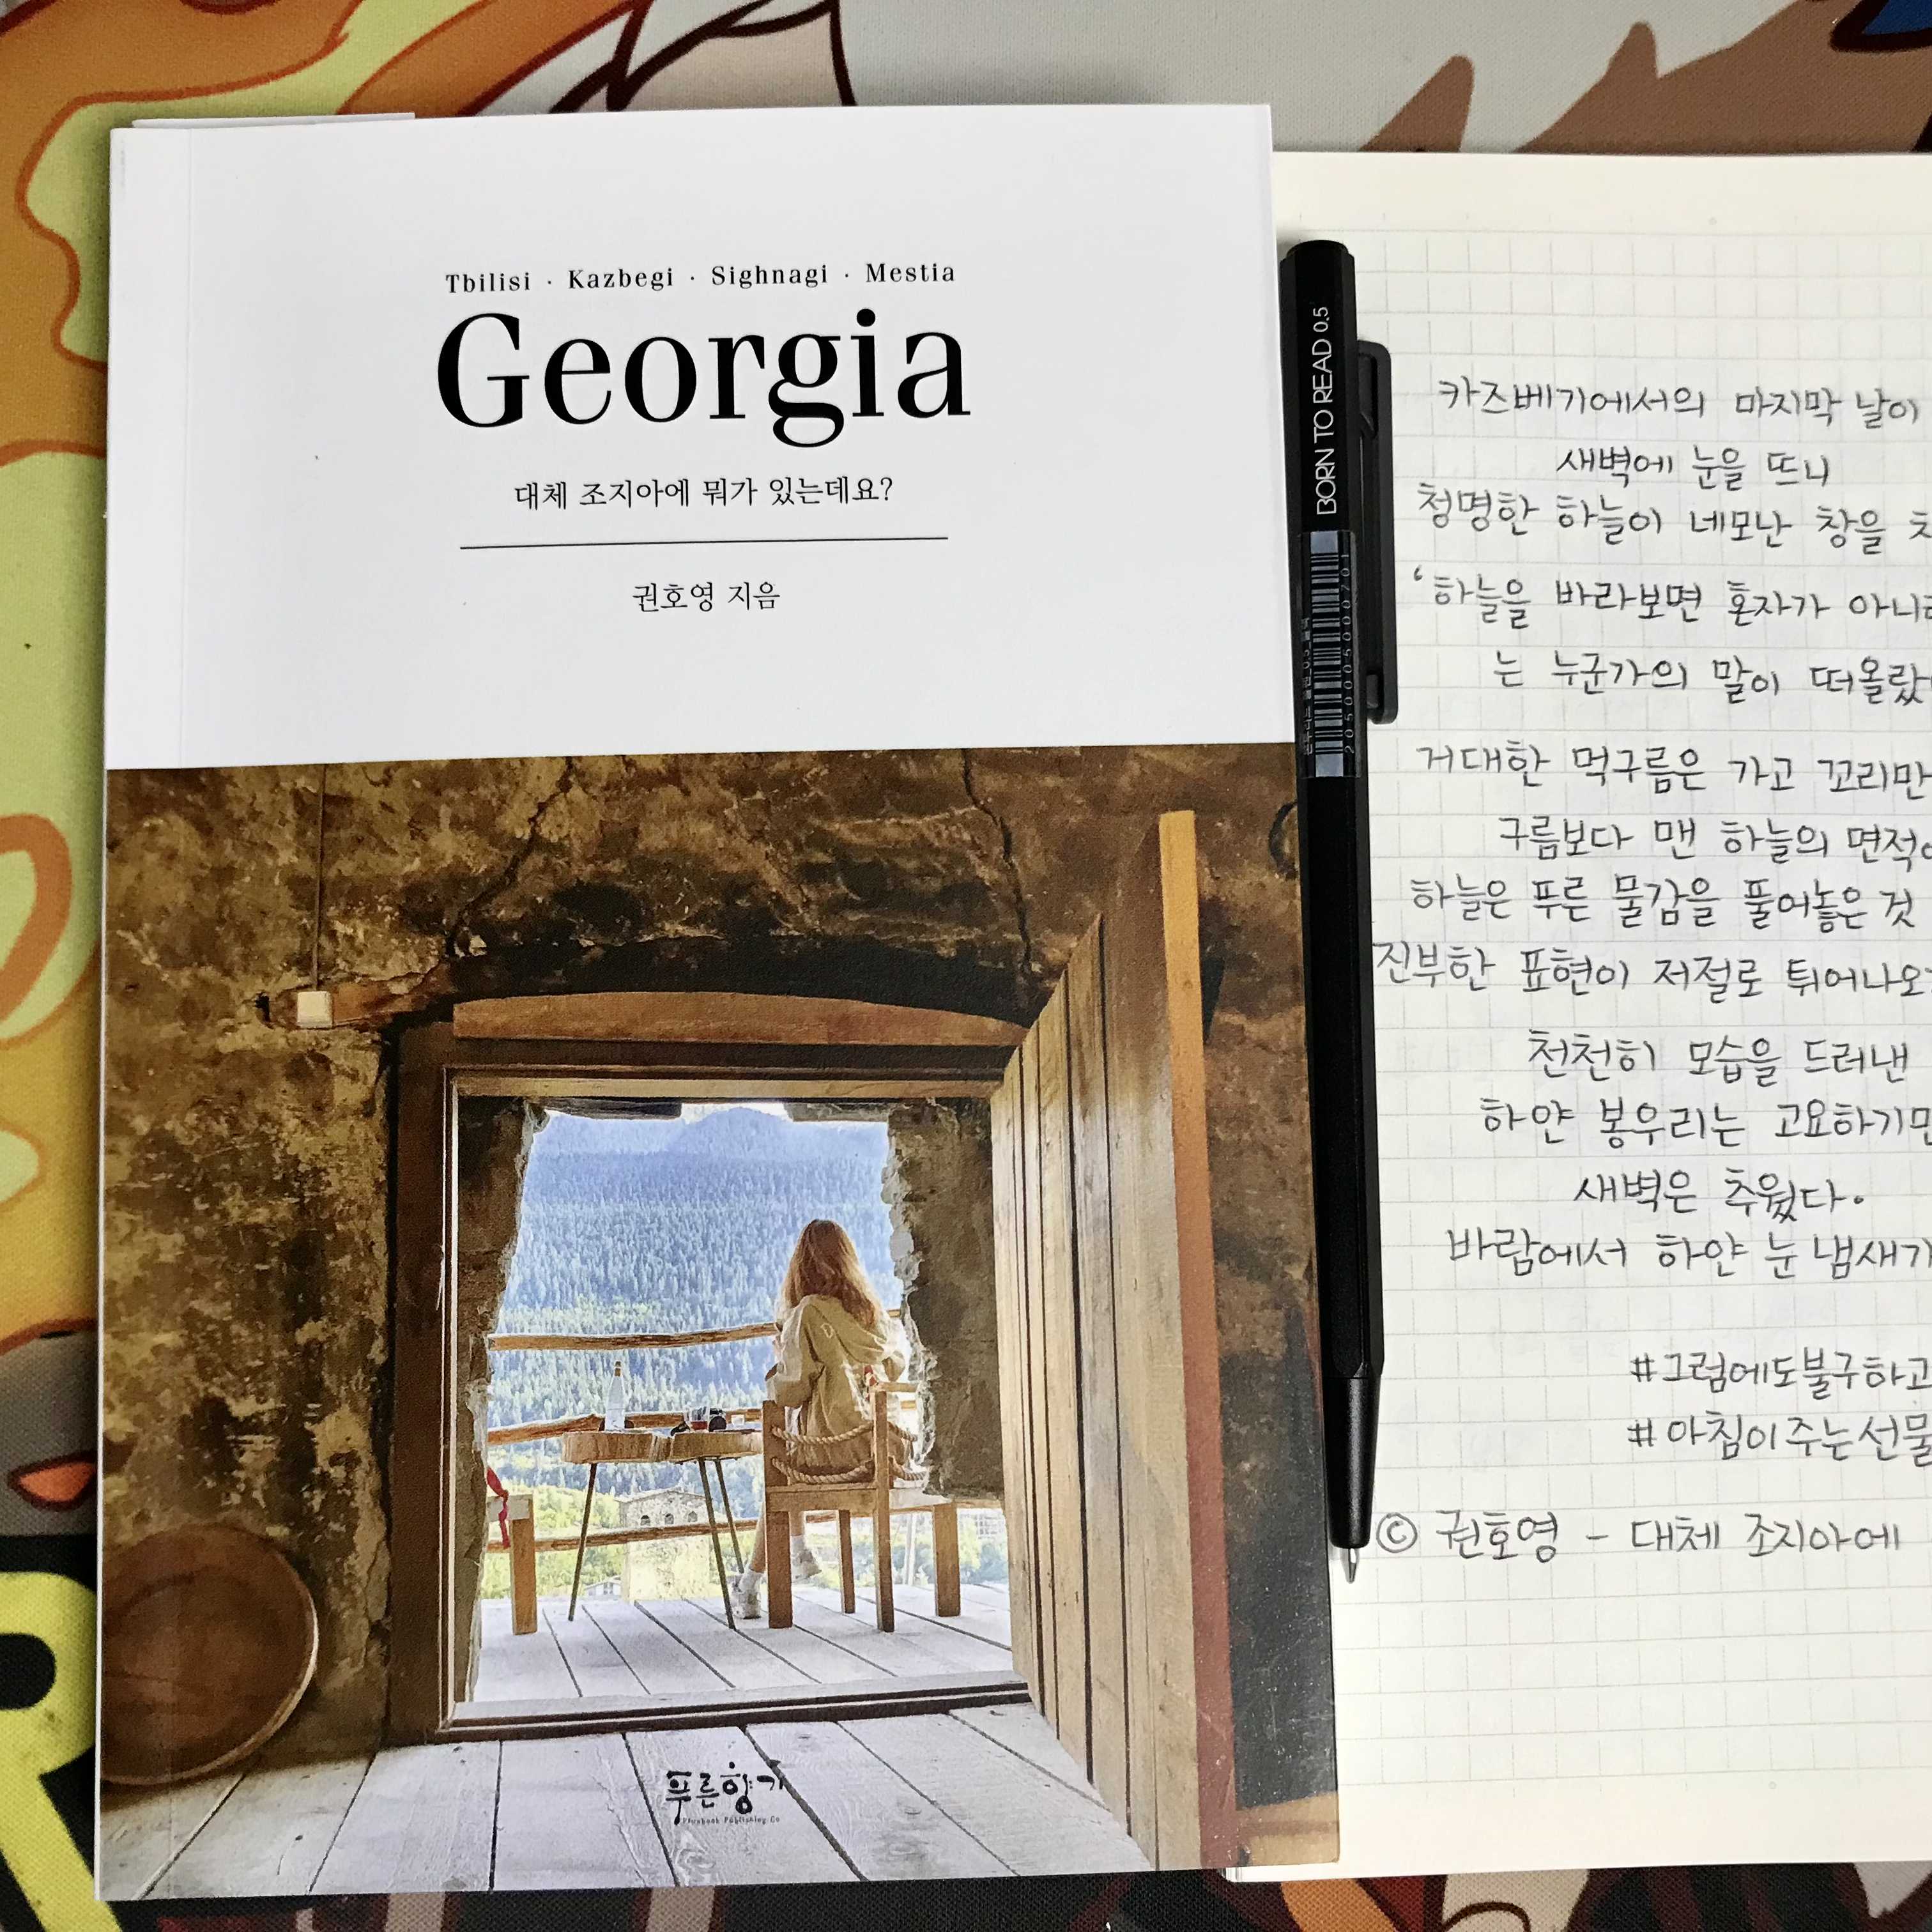 Tbilisi · Kazbegi · Sighnagi · Mestia
Georgia
대체 조지아에 뭐가 있는데요?
권호영 지음
푸른향기
BORN TO READ 0.5
2050005000701
카즈베기에서의 마지막 날이
새벽에 눈을 뜨니
청명한 하늘이 네모난 창을
'하늘을 바라보면 혼자가
는 누군가의 말이
거대한 먹구름은 가고 꼬리만
구름보다 맨 하늘의
하늘은 푸른 물감을 풀어놓은 것
진부한 표현이 저절로
천천히 모습을 드러낸
하얀 봉우리는
새벽은 추웠다.
바람에서 하얀 눈 냄새가
#그럼에도불구하고
#아침이주는선물
© 권호영 - 대체 조지아에